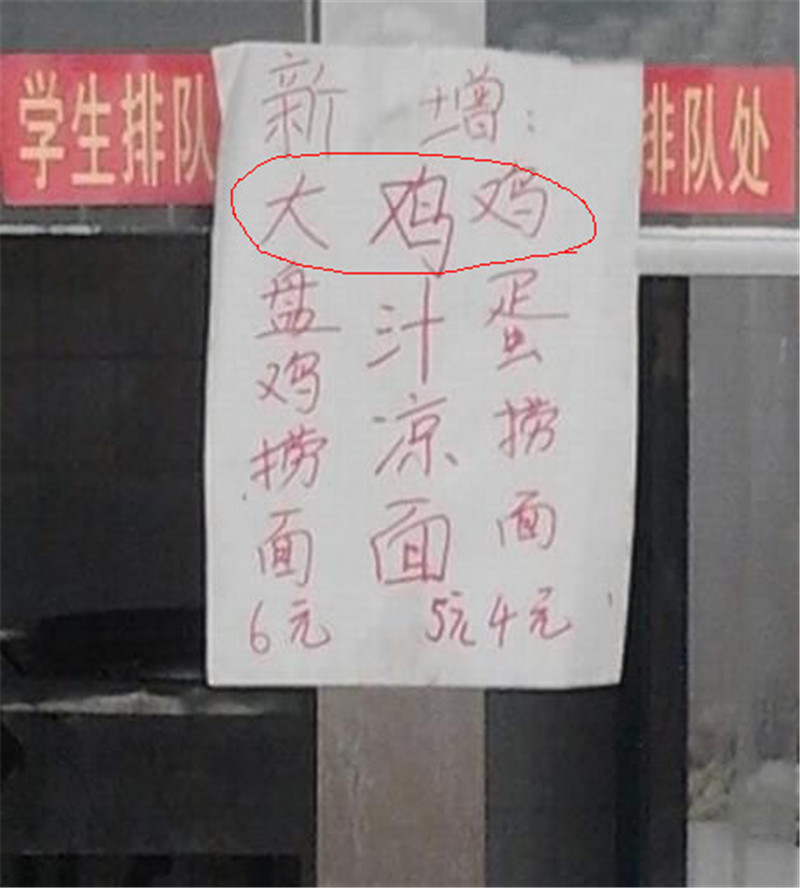 学生排队
排队处
新增:
大盘鸡捞面6元
鸡汁凉面5元
鸡蛋捞面4元